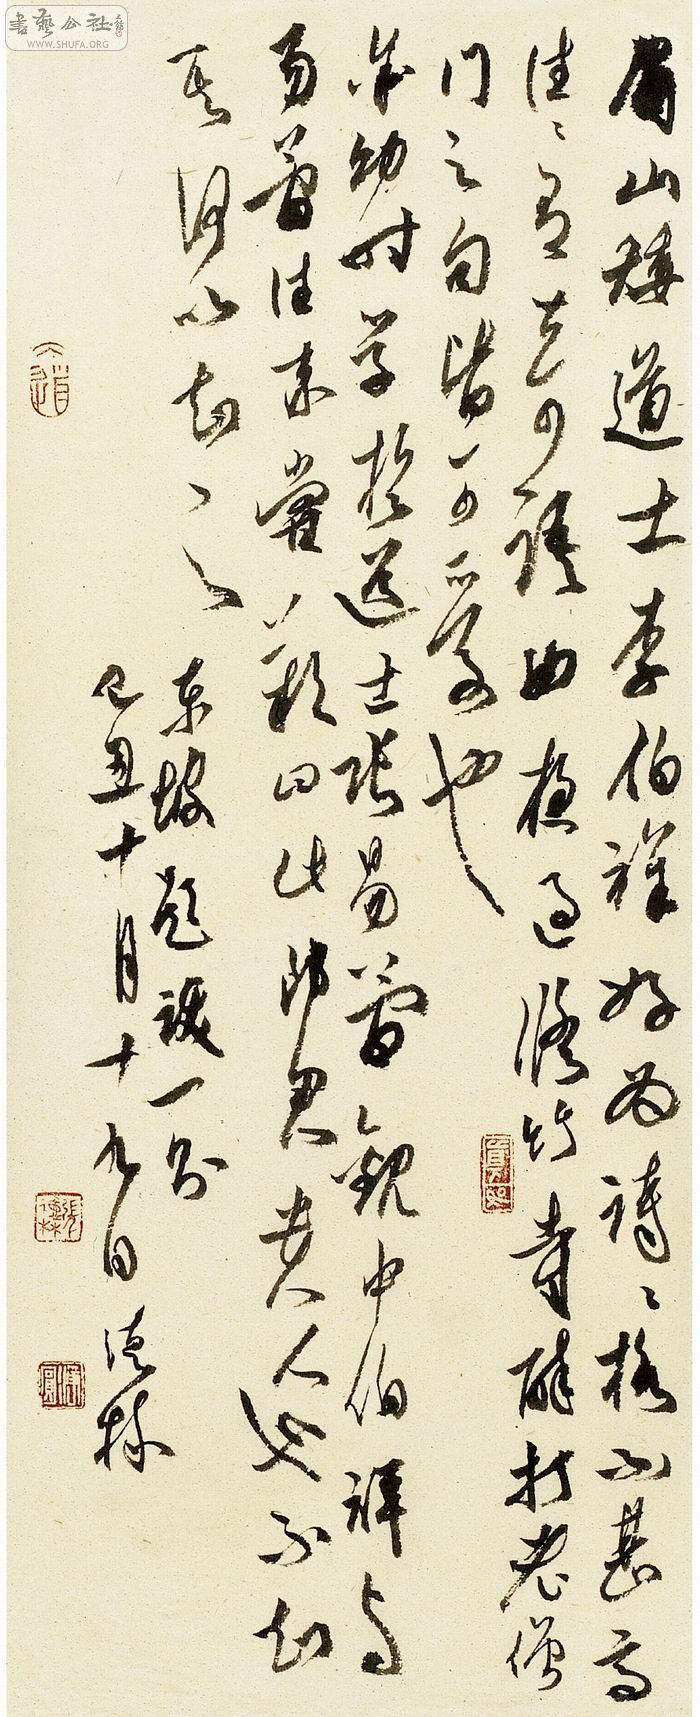 書藝公社
WWW.SHUFA.ORG
眉山矮道士李伯祥好为詩〻格不甚高
往〻有奇語如夜過修竹寺醉打老僧
门之句皆可爱也
余幼时学於道士张易简觀中伯祥与
易简往来嘗歎曰此郎君贵人也不知
其何以知之
东坡题跋一则
己丑十月十九日 德林